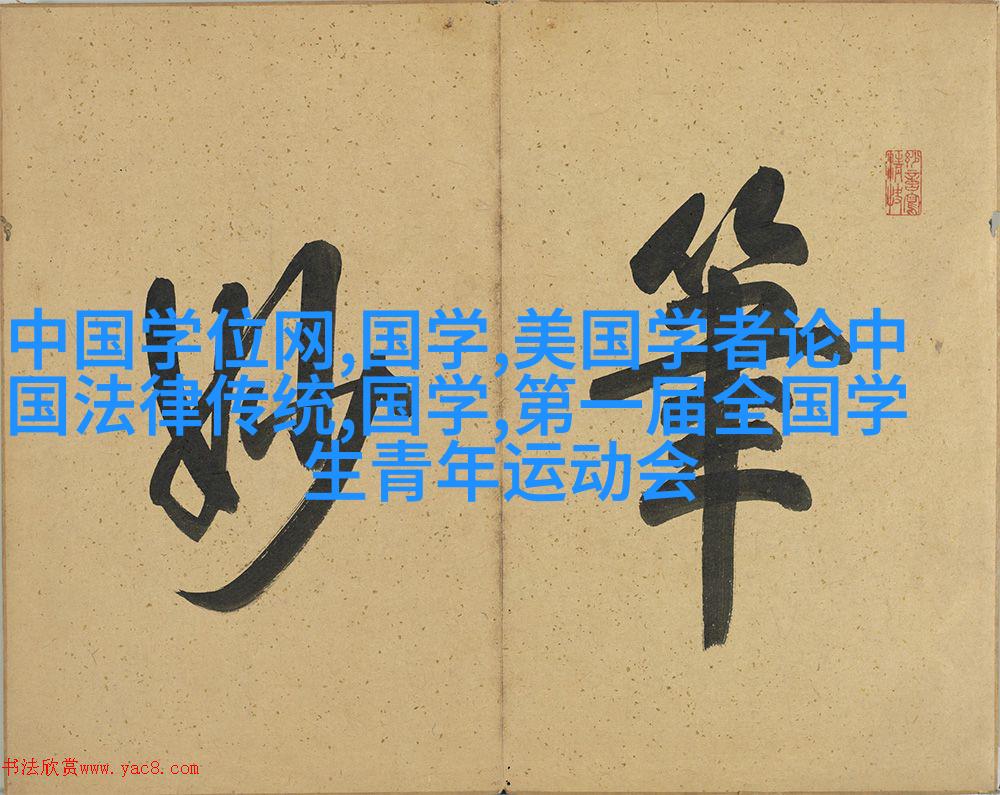 筆
妙
中国学位网,国学,美国学者论中
国法律传统,国学,第一届全国学
生青年运动会
书法欣赏www.yac8.com